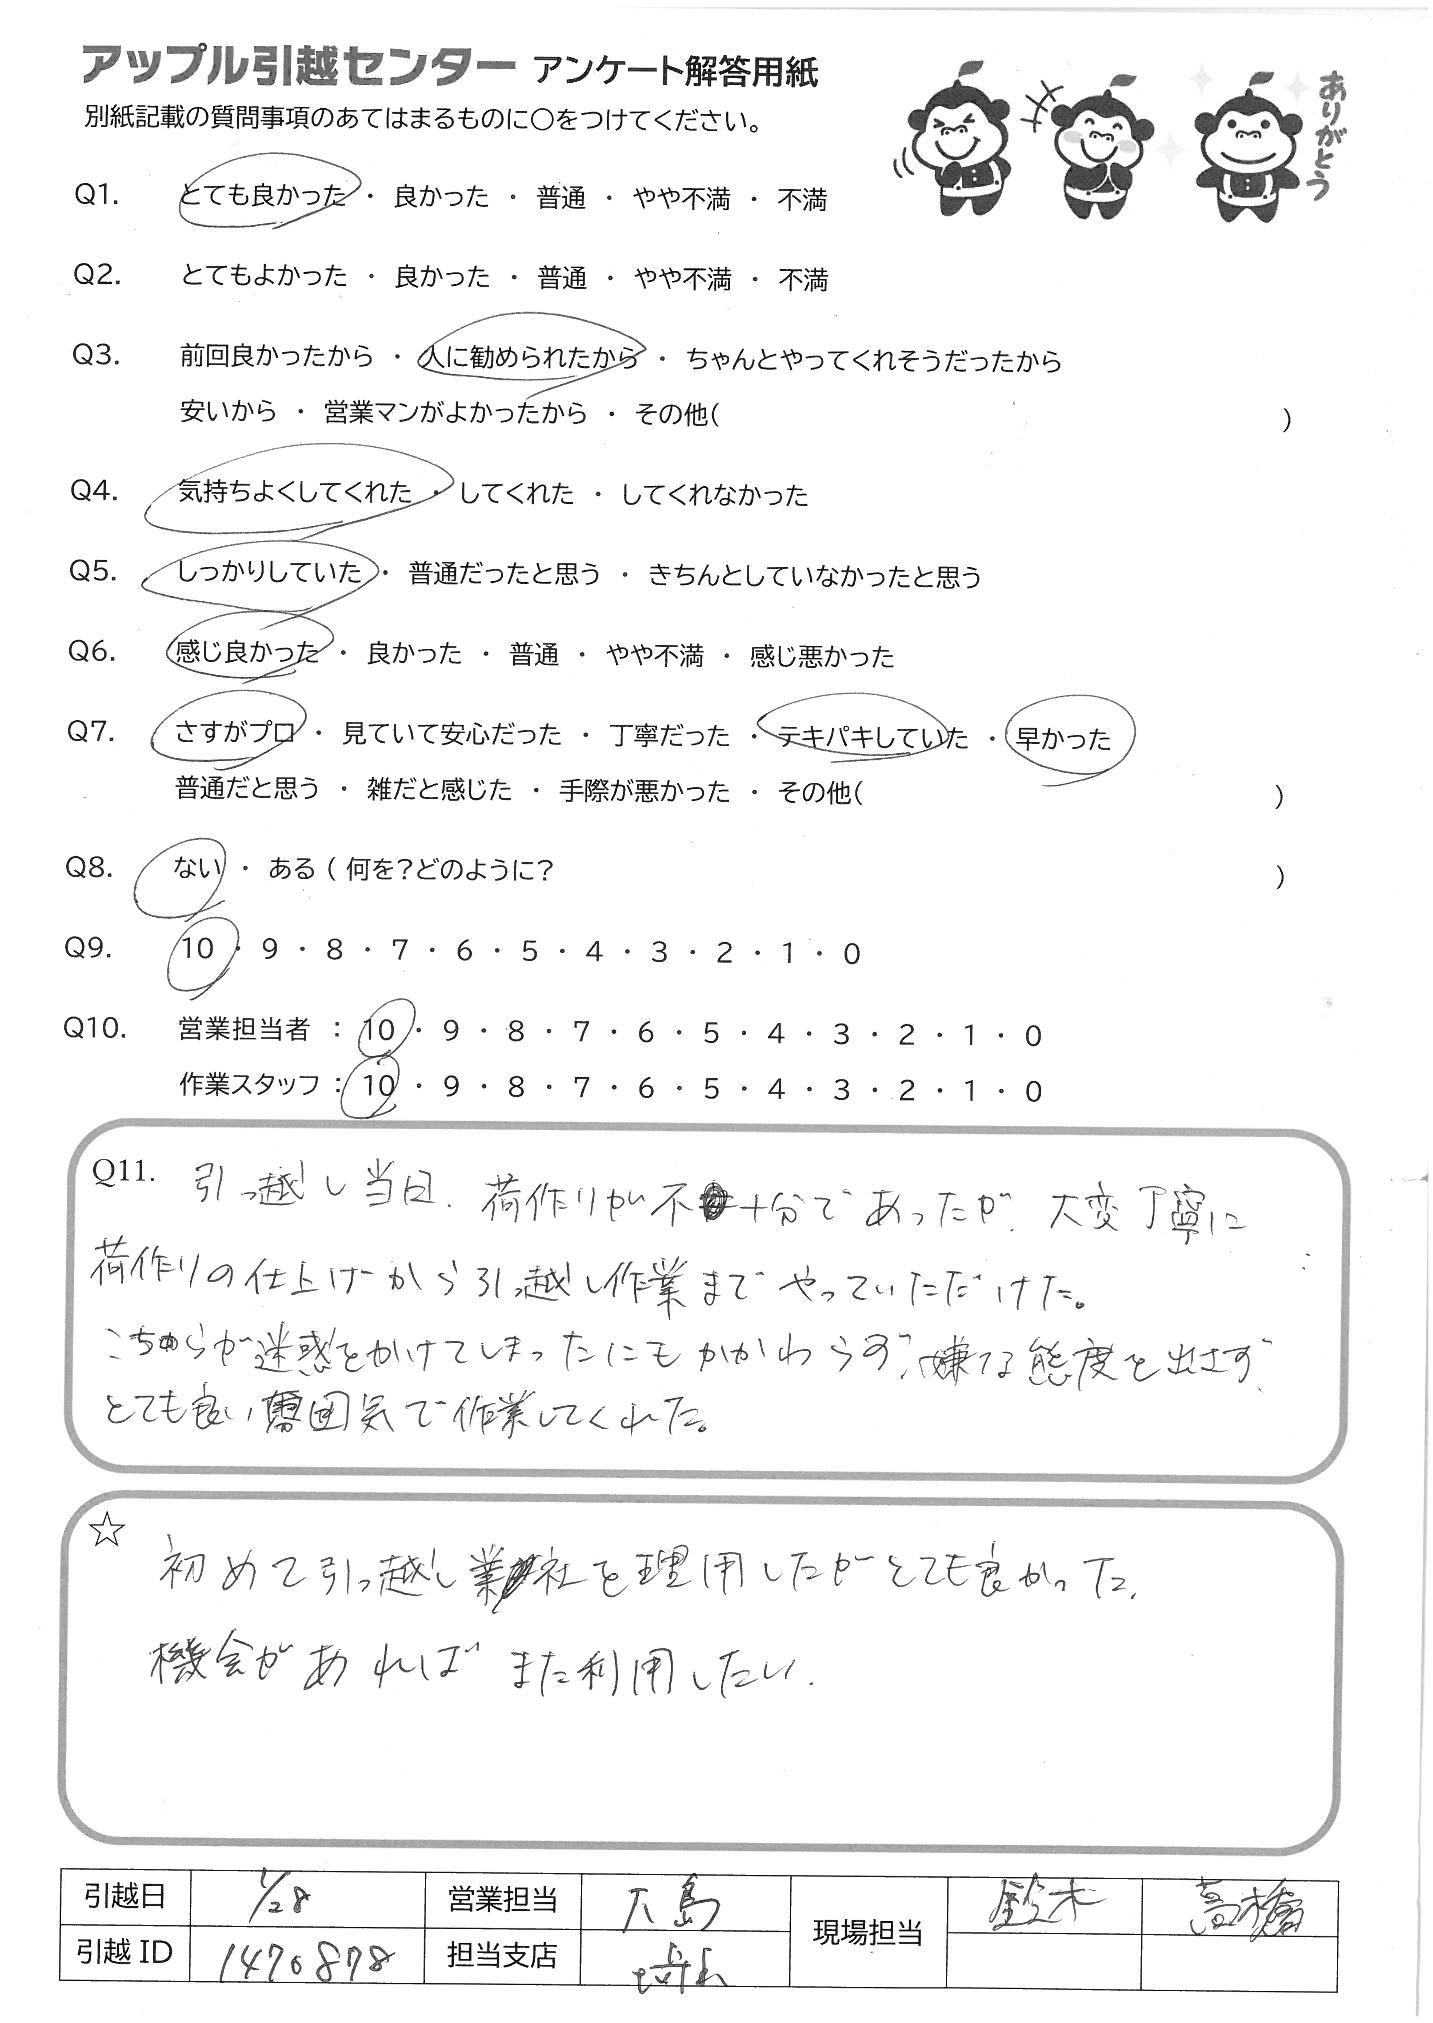 アップル引越センター アンケート解答用紙
別紙記載の質問事項のあてはまるものに〇をつけてください。
ありがとう
Q1. とても良かった ・ 良かった ・ 普通 ・ やや不満 ・ 不満
Q2. とてもよかった ・ 良かった ・ 普通 ・ やや不満 ・ 不満
Q3. 前回良かったから ・ 人に勧められたから ・ ちゃんとやってくれそうだったから
安いから ・ 営業マンがよかったから ・ その他( )
Q4. 気持ちよくしてくれた ・ してくれた ・ してくれなかった
Q5. しっかりしていた ・ 普通だったと思う ・ きちんとしていなかったと思う
Q6. 感じ良かった ・ 良かった ・ 普通 ・ やや不満 ・ 感じ悪かった
Q7. さすがプロ ・ 見ていて安心だった ・ 丁寧だった ・ テキパキしていた ・ 早かった
普通だと思う ・ 雑だと感じた ・ 手際が悪かった ・ その他( )
Q8. ない ・ ある ( 何を?どのように? )
Q9. 10 ・ 9 ・ 8 ・ 7 ・ 6 ・ 5 ・ 4 ・ 3 ・ 2 ・ 1 ・ 0
Q10. 営業担当者 : 10 ・ 9 ・ 8 ・ 7 ・ 6 ・ 5 ・ 4 ・ 3 ・ 2 ・ 1 ・ 0
作業スタッフ : 10 ・ 9 ・ 8 ・ 7 ・ 6 ・ 5 ・ 4 ・ 3 ・ 2 ・ 1 ・ 0
Q11. 引っ越し当日、荷作りが不十分であったが、大変丁寧に
荷作りの仕上げから引っ越し作業までやっていただけた。
こちらが迷惑をかけてしまったにもかかわらず、嫌な態度を出さず、
とても良い雰囲気で作業してくれた。
☆ 初めて引っ越し業社を理用したがとても良かった.
機会があればまた利用したい.
引越日 1/28 営業担当 大島 現場担当 鈴木 高橋
引越ID 1470878 担当支店 埼玉